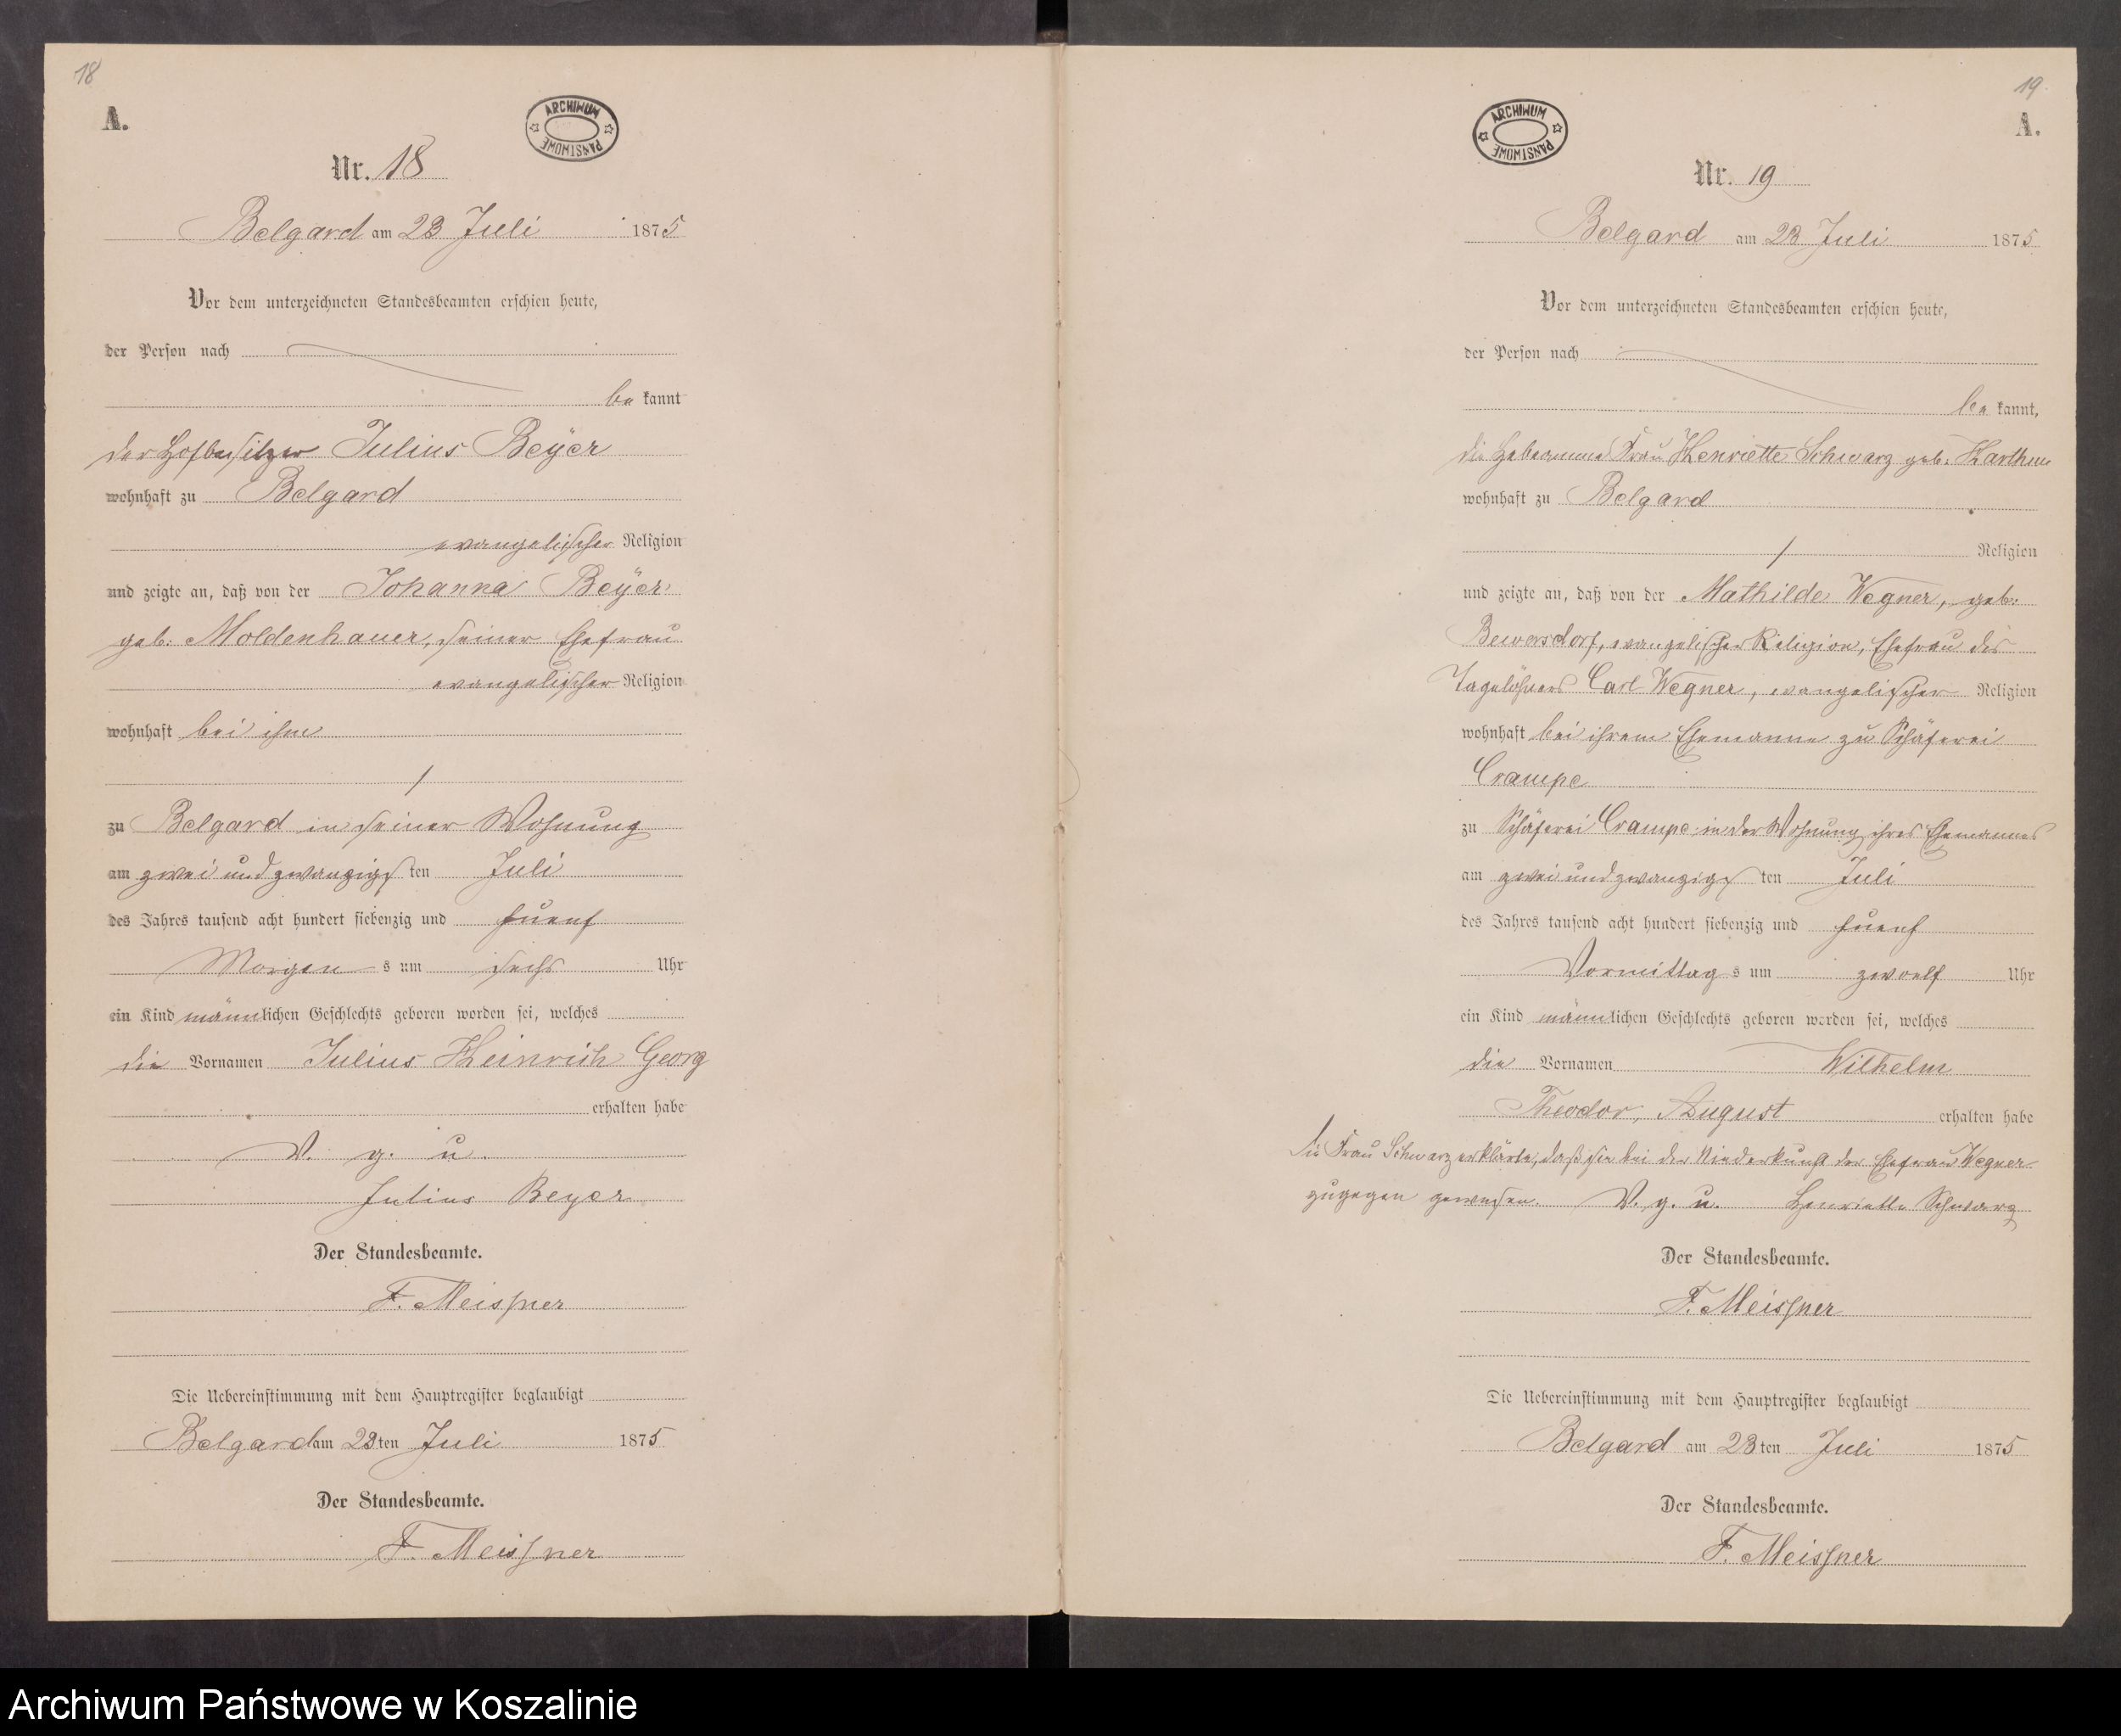 18
A.
ARCHIWUM PAŃSTWOWE
Nr. 18
Belgard am 23 Juli 1875
Vor dem unterzeichneten Standesbeamten erschien heute,
der Person nach
be kannt
der Hofbesitzer Julius Beÿer
wohnhaft zu Belgard
evangelischer Religion
und zeigte an, daß von der Johanna Beÿer
geb: Moldenhauer, seiner Ehefrau
evangelischer Religion
wohnhaft bei ihm
/
zu Belgard in seiner Wohnung
am zwei und zwanzigs ten Juli
des Jahres tausend acht hundert siebenzig und fuenf
Morgen s um sechs Uhr
ein Kind männlichen Geschlechts geboren worden sei, welches
die Vornamen Julius Heinrich Georg
erhalten habe
V. g. u.
Julius Beyer
Der Standesbeamte.
F. Meissner
Die Uebereinstimmung mit dem Hauptregister beglaubigt
Belgard am 23ten Juli 1875
Der Standesbeamte.
F. Meissner
19
A.
ARCHIWUM PAŃSTWOWE
Nr. 19
Belgard am 23 Juli 1875
Vor dem unterzeichneten Standesbeamten erschien heute,
der Person nach
be kannt,
die Hebeamme Frau Henriette Schwarz geb:
wohnhaft zu Belgard
/ Religion
und zeigte an, daß von der Mathilde Wegner, geb:
Bewersdorf, evangelischer Religion, Ehefrau des
Tagelöhners Carl Wegner, evangelischer Religion
wohnhaft bei ihrem Ehemanne zu Schäferei
Crampe
zu Schäferei Crampe in der Wohnung ihres Ehemannes
am zwei und zwanzigs ten Juli
des Jahres tausend acht hundert siebenzig und fuenf
Vormittag s um zwoelf Uhr
ein Kind männlichen Geschlechts geboren worden sei, welches
die Vornamen Wilhelm
Theodor, August erhalten habe
Die Frau Schwarz erklärte, daß sie bei der Niederkunft der Ehefrau Wegner
zugegen gewesen. V. g. u. Henriette Schwarz
Der Standesbeamte.
F. Meissner
Die Uebereinstimmung mit dem Hauptregister beglaubigt
Belgard am 23ten Juli 1875
Der Standesbeamte.
F. Meissner
Archiwum Państwowe w Koszalinie